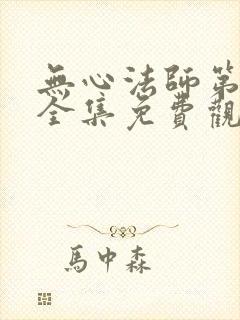 無心法師第
全集免費觀
馬中森